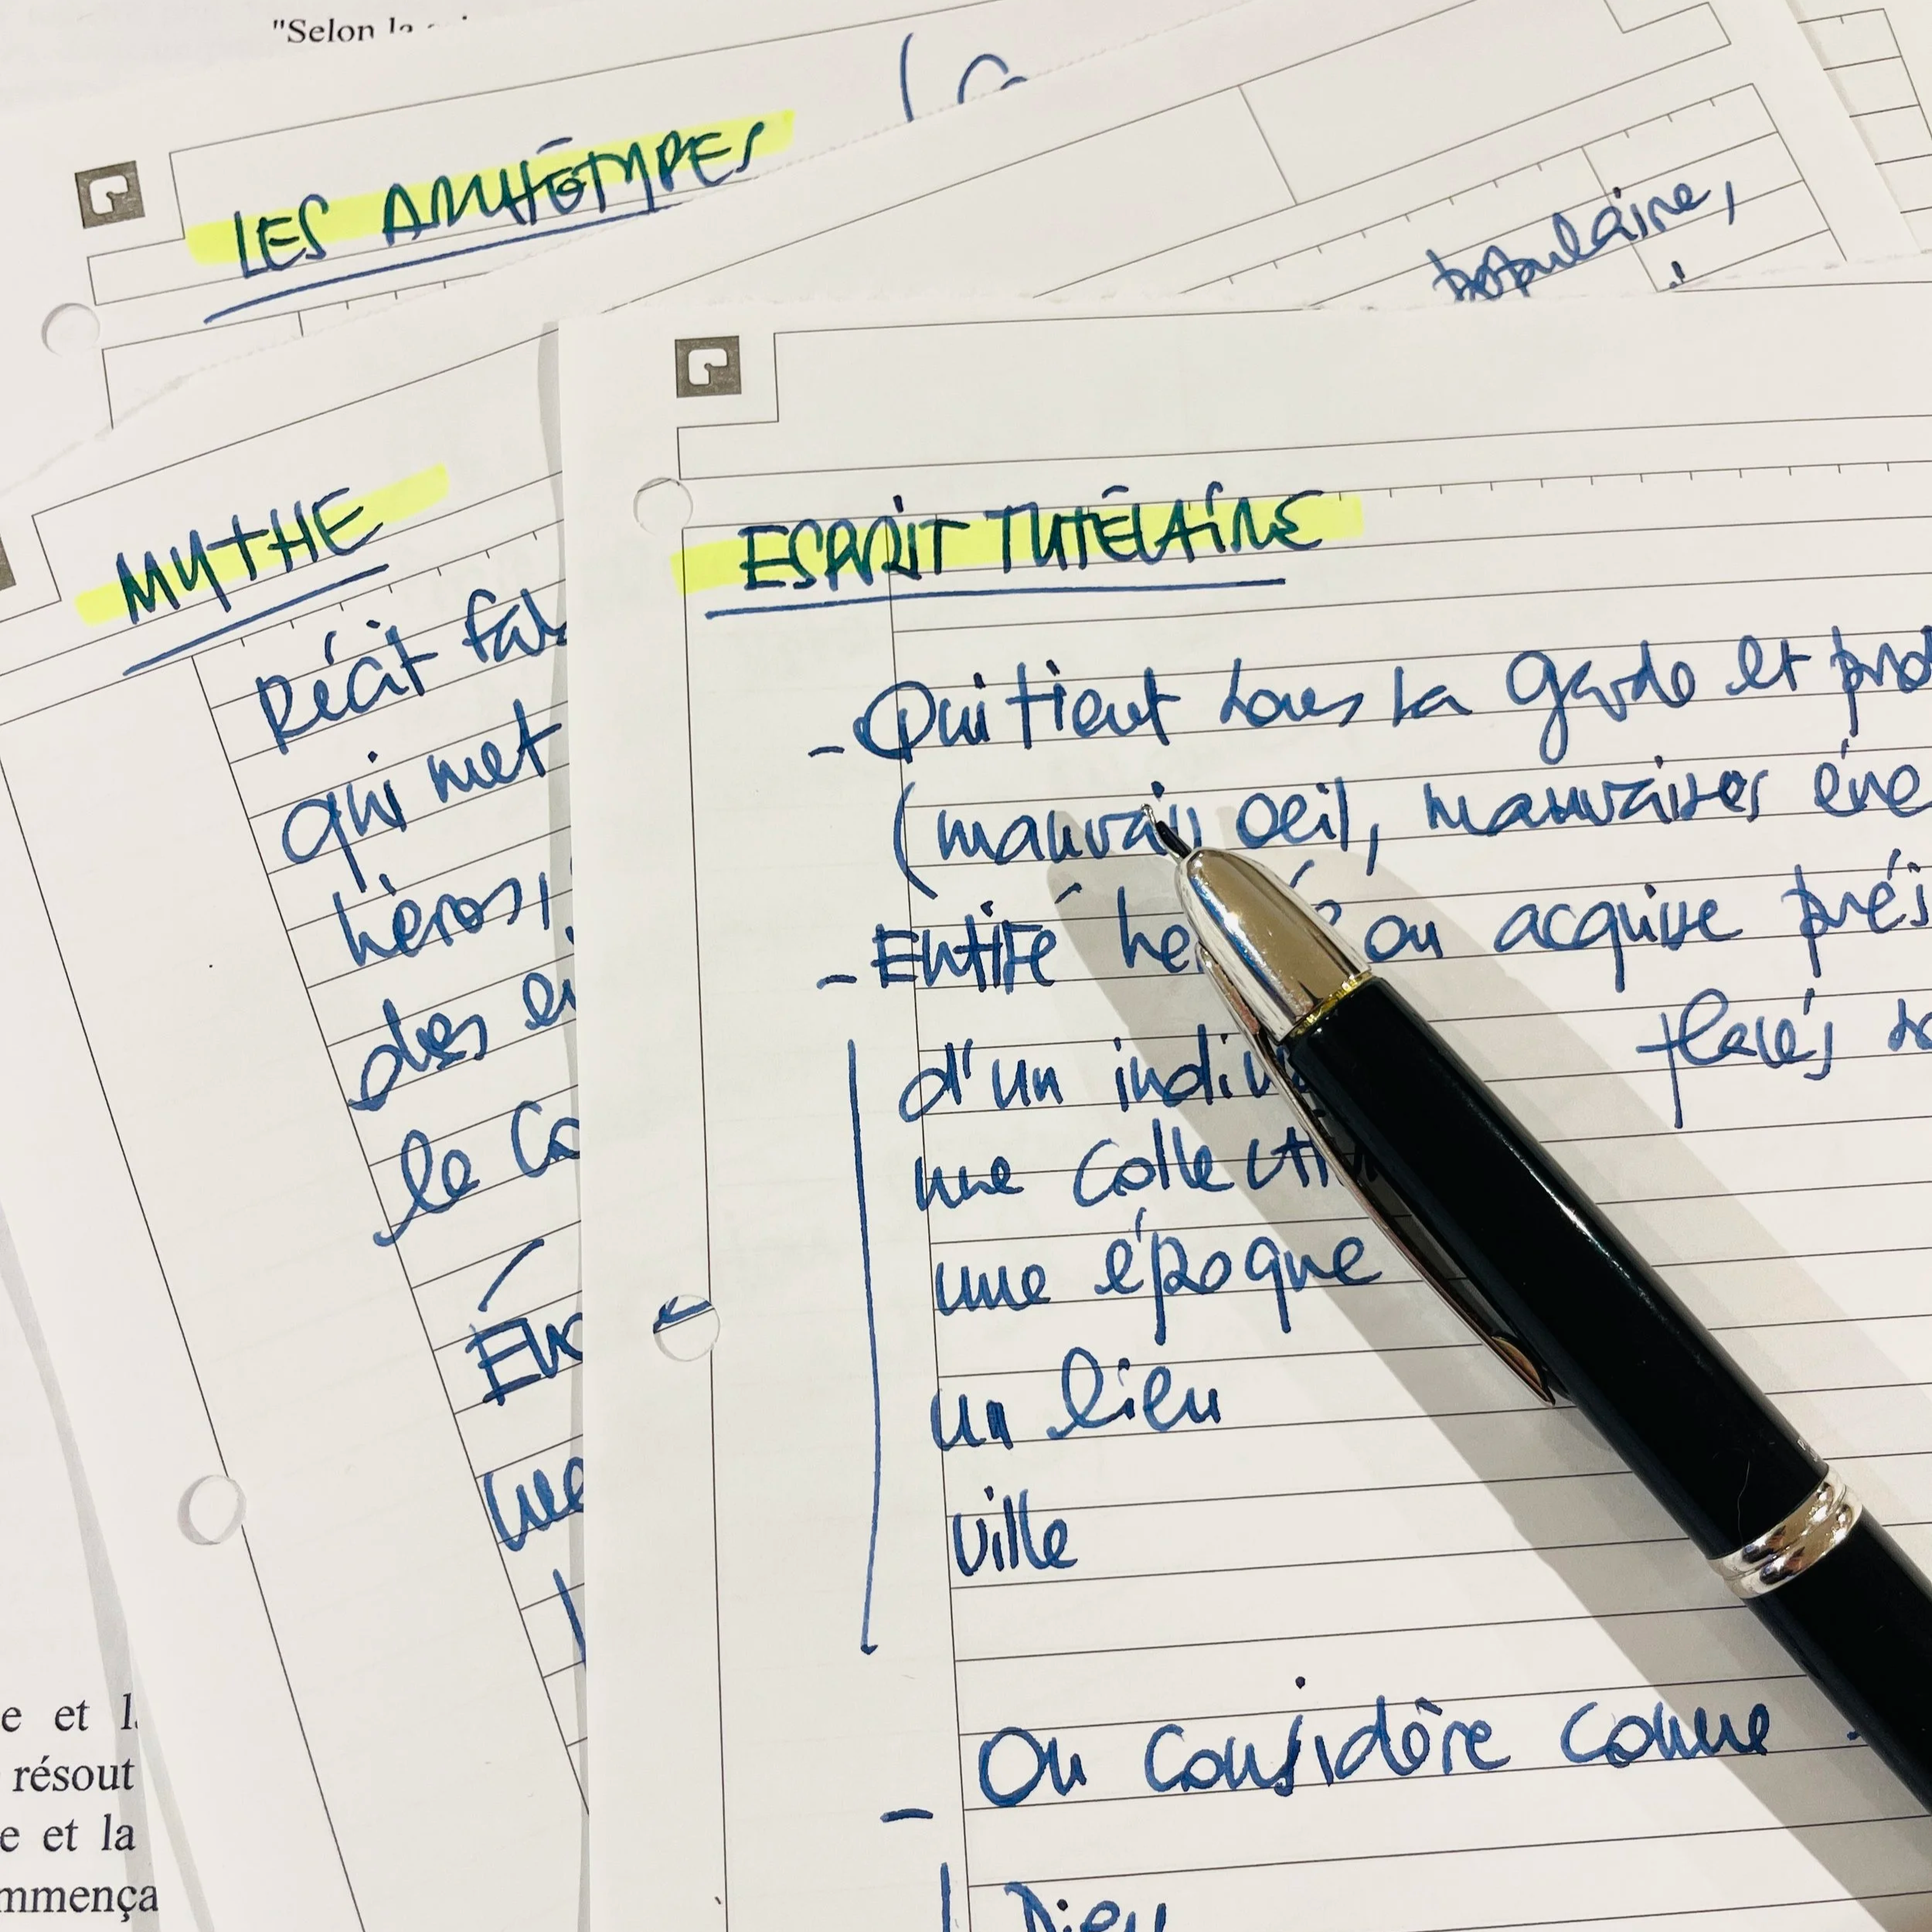 "Selon la
LES ARCHÉTYPES
populaire,
MYTHE
Récit fab
qui met
héros,
des
le Co
ESPRIT TUTÉLAIRE
- Qui tient sous la garde et prot
(mauvais oeil, mauvaises éne
- Entité ou acquise prés
placés
d'un indiv
une collecti
une époque
un lieu
ville
- On considère comme
Dieu
e et l
résout
e et la
mmença